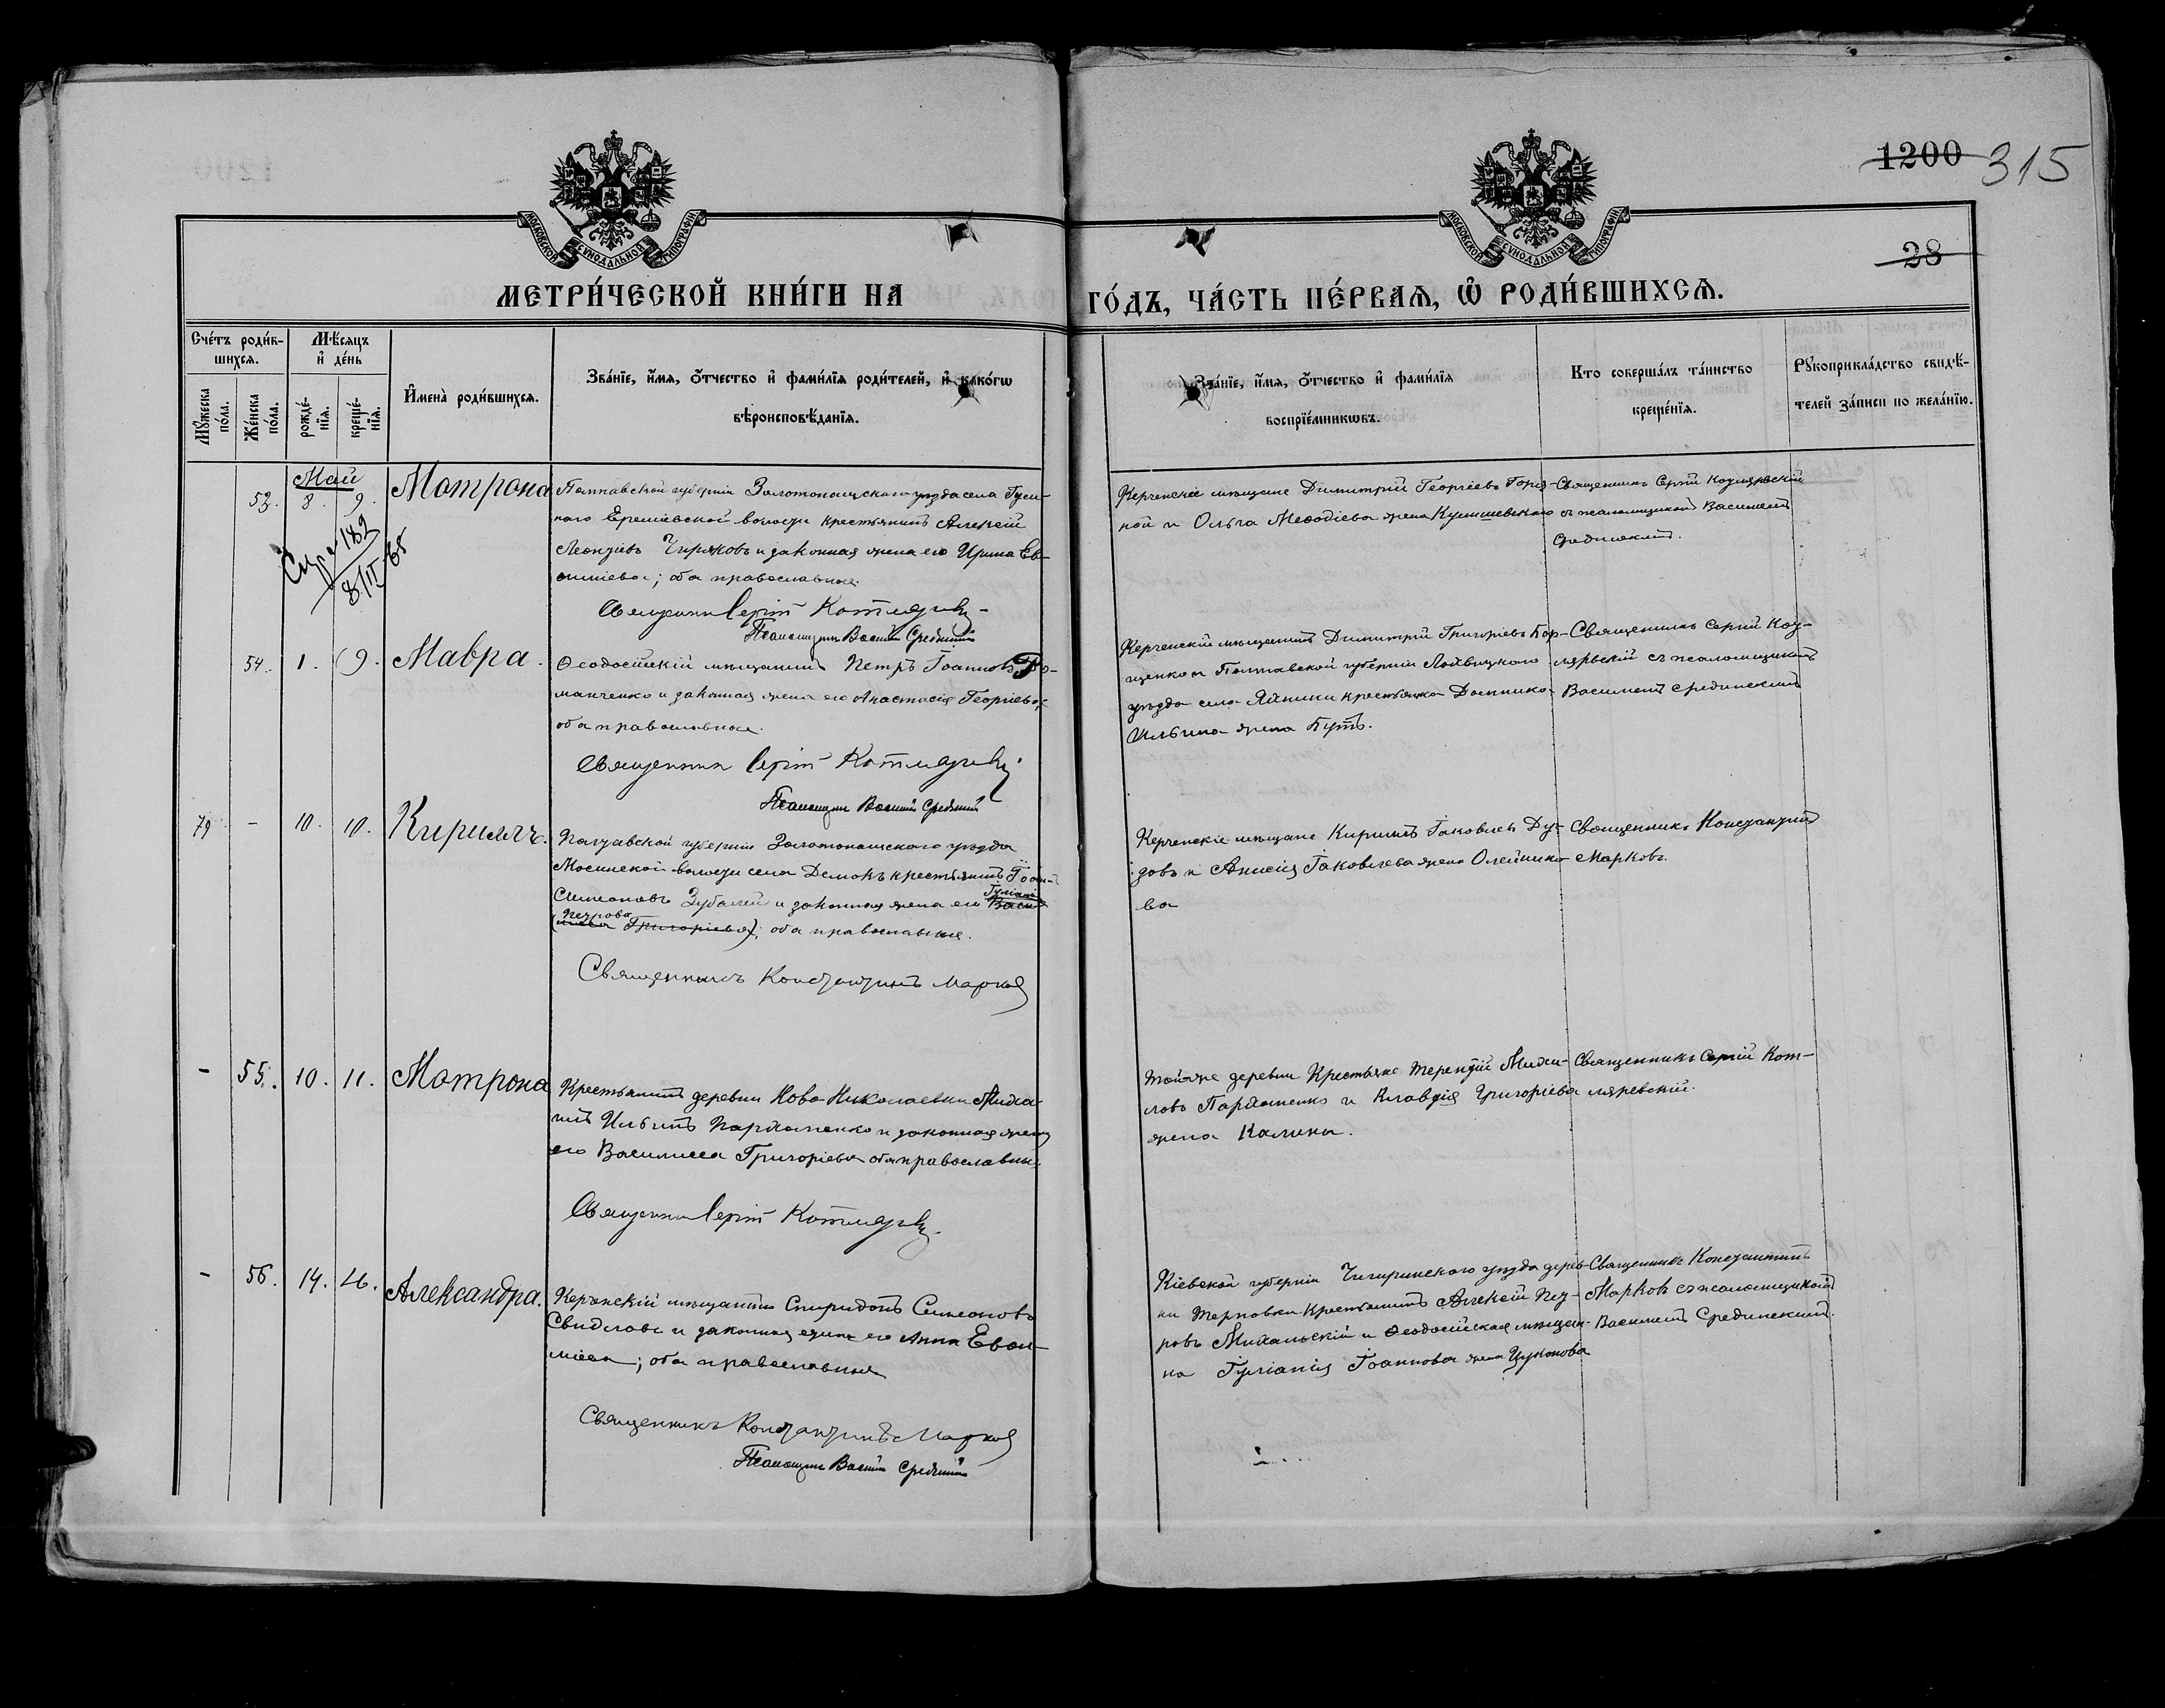 1200 315
МОСКОВСКОЙ СУНОДАЛЬНОЙ ТИПОГРАФІИ
МОСКОВСКОЙ СУНОДАЛЬНОЙ ТИПОГРАФІИ
28
МЕТРИ́ЧЕСКОЙ КНИ́ГИ НА ГО́ДЪ, ЧА́СТЬ ПЕ́РВАѦ, Ѽ РОДИ́ВШИХСѦ.
Сче́тъ роди́в-
шихсѧ.
Мꙋ́жеска по́ла.
Же́нска по́ла.
Мѣ́сяцъ
и҆ де́нь
рожде́-
нїѧ.
креще́-
нїѧ.
И҆мена̀ роди́вшихсѧ.
Зва́нїе, и҆́мѧ, ѻ҆́тчество и҆ фами́лїѧ роди́телей, и҆ како́гѡ
вѣроисповѣ́данїѧ.
Зва́нїе, и҆́мѧ, ѻ҆́тчество и҆ фами́лїѧ
воспрїе́мникѡвъ.
Кто соверша́лъ та́инство
креще́нїѧ.
Рꙋкоприкла́дство свидѣ́-
телей за́писи по жела́нїю.
Май
53. 8. 9. Матрона
Полтавской губерніи Золотоношскаго уѣзда села
Еремѣевской волости крестьянинъ Алексій
Леонтіевъ Чирковъ и законная жена его Ирина Ев-
; оба православные.
182
8/II 65
Священникъ Сергій Котляревскій
Псаломщикъ Василій Срединскій
Керченскіе мѣщане Димитрій Георгіевъ
и Ольга Меѳодіева жена
Священникъ Сергій Котляревскій
съ псаломщикомъ Василіемъ
Срединскимъ.
54. 1. 9. Мавра.
Ѳеодосійскій мѣщанинъ Петръ Іоанновъ Ро-
манченко и законная жена его Анастасія Георгіева;
оба православные.
Священникъ Сергій Котляревскій
Псаломщикъ Василій Срединскій
Керченскій мѣщанинъ Димитрій Григоріевъ Бор-
щенко и Полтавской губерніи Лохвицкаго
уѣзда села Яхники крестьянка Домника
Ильина жена Бутъ.
Священникъ Сергій Кот-
лярвскій съ псаломщикомъ
Василіемъ Срединскимъ
79 - 10. 10. Кириллъ.
Полтавской губерніи Золотоношскаго уѣзда
волости села Демокъ крестьянинъ Іоаннъ
Симеоновъ Зубалій и законная жена его Іуліанія
Петрова Григоріева); оба православные.
Священникъ Константинъ Марковъ
Керченскіе мѣщане Кириллъ Іаковлевъ Ду-
довъ и Анисія Іаковлева жена Олейнико-
ва
Священникъ Константинъ
Марковъ.
- 55. 10. 11. Матрона
Крестьянинъ деревни Ново-Николаевки Миха-
илъ Ильинъ Пархоменко и законная жена
его Василисса Григоріева оба православные
Священникъ Сергій Котляревскій.
Той же деревни Крестьяне Терентій Михаи-
ловъ Пархоменко и Клавдія Григоріева
жена Калина.
Священникъ Сергій Кот-
ляревскій.
- 56. 14. 16. Александра.
Керченскій мѣщанинъ Спиридонъ Симеоновъ
Свидловъ и законная жена его Анна Евѳи-
міева; оба православные
Священникъ Константинъ Марковъ
Псаломщикъ Василій Срединскій
Кіевской губерніи Чигиринскаго уѣзда дерев-
ни Терновки Крестьянинъ Алексій Пет-
ровъ Михальскій и Ѳеодосійская мѣщан-
ка Іуліанія Іоаннова жена Цуканова
Священникъ Константинъ
Марковъ съ псаломщикомъ
Василіемъ Срединскимъ.